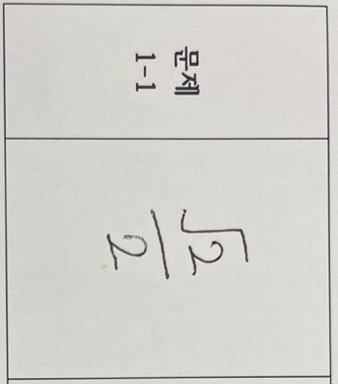 문제
1-1
√2/2